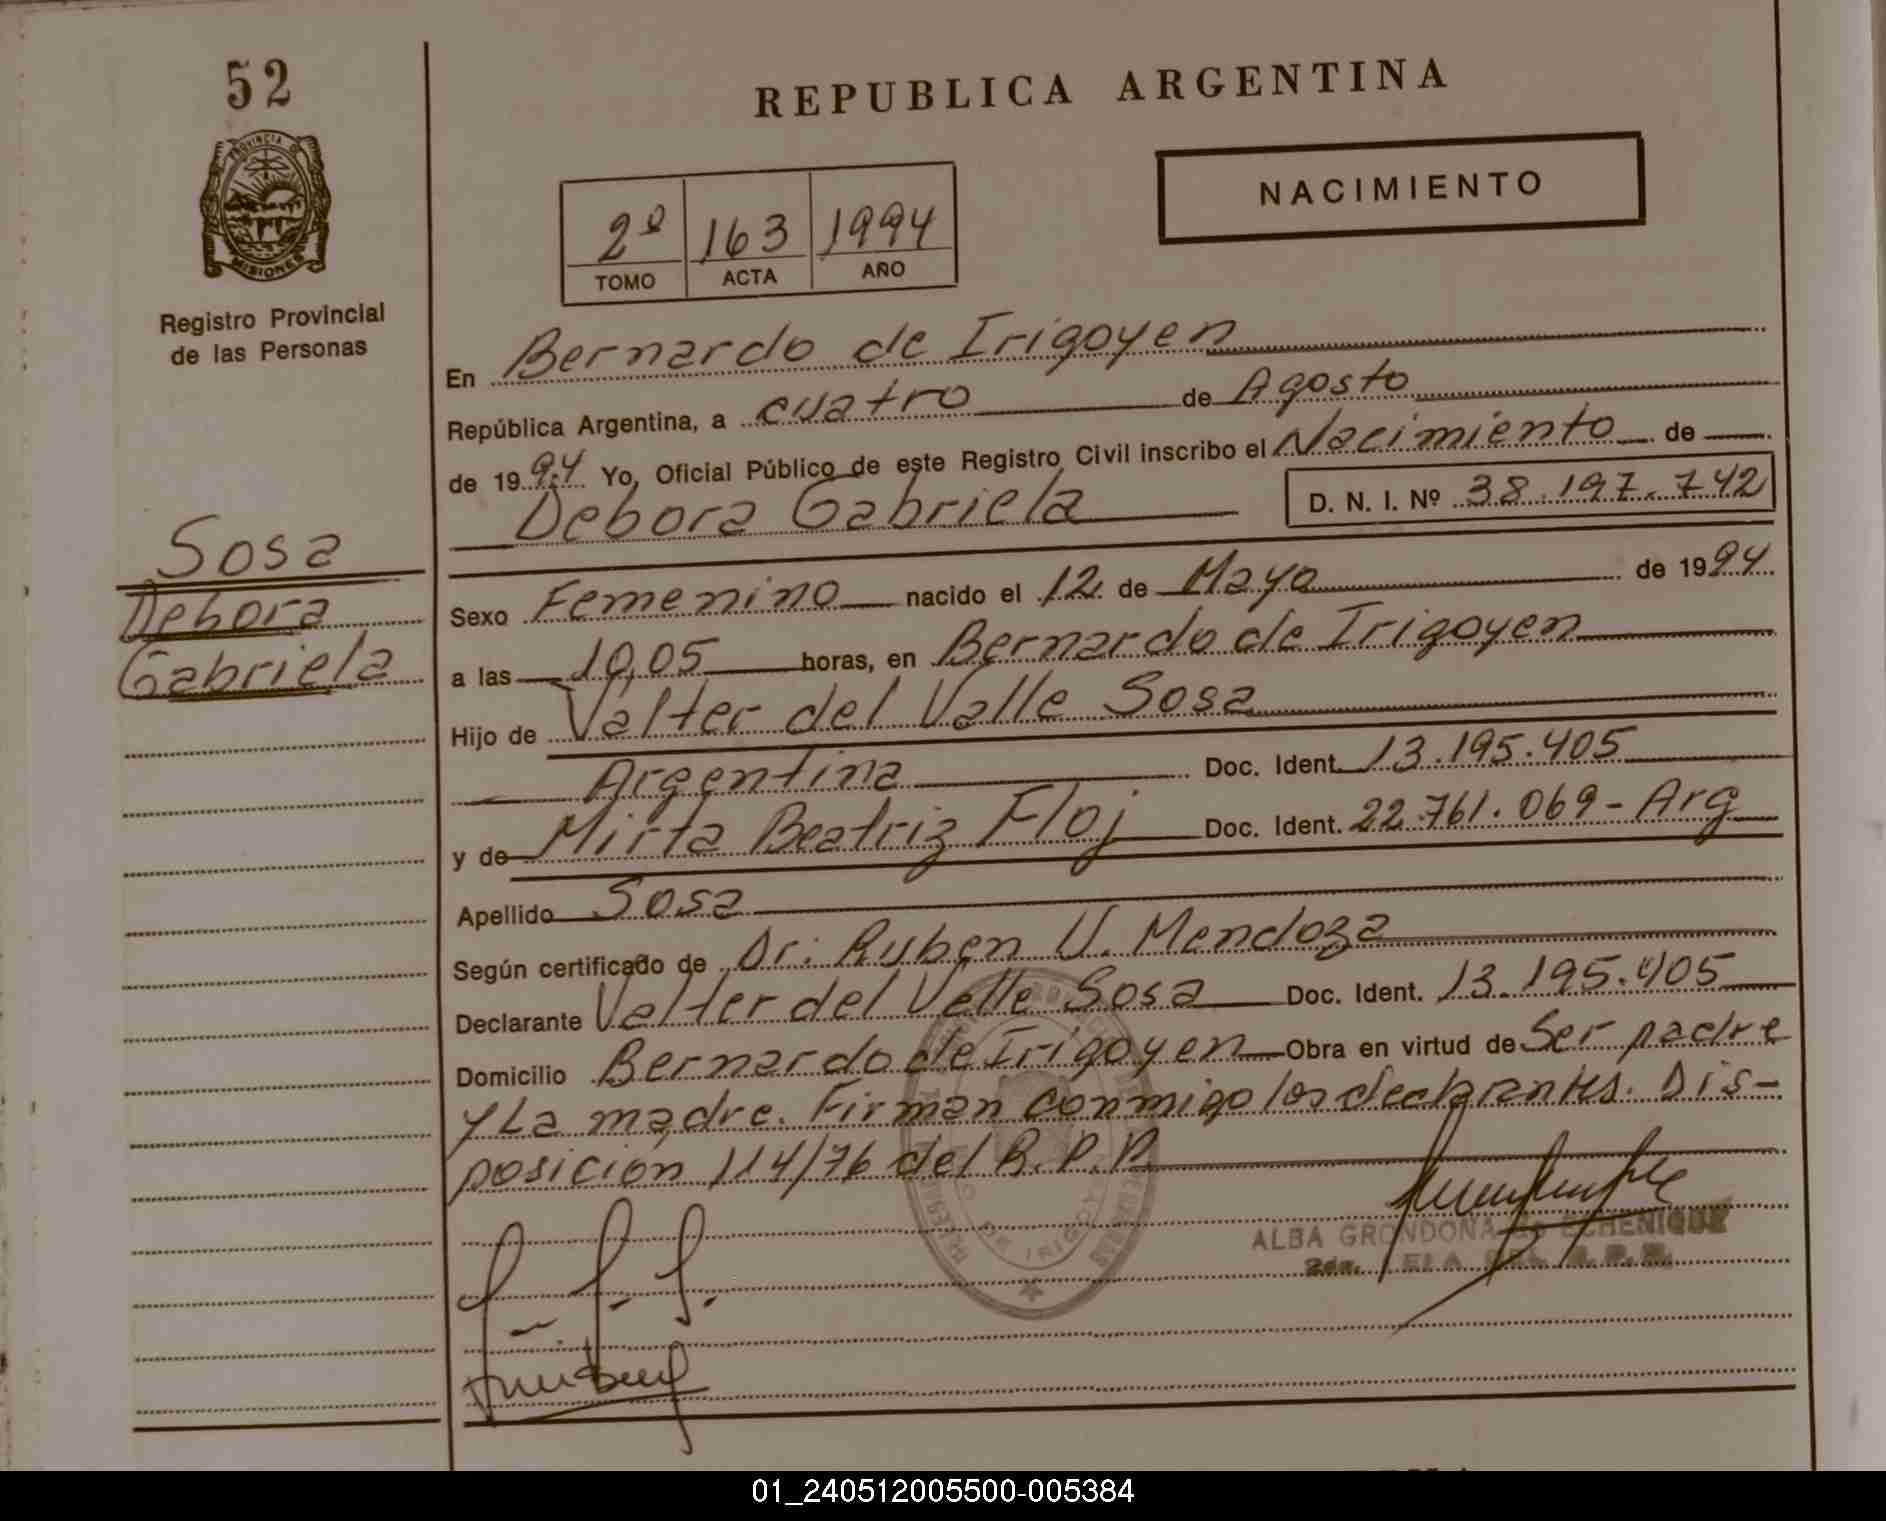 52
PROVINCIA D
MISIONES
Registro Provincial
de las Personas
Sosa
Debora
Gabriela
REPUBLICA ARGENTINA
NACIMIENTO
2º 163 1994
TOMO ACTA AÑO
En Bernardo de Irigoyen
República Argentina, a cuatro de Agosto
de 1994 Yo, Oficial Público de este Registro Civil inscribo el Nacimiento de
Debora Gabriela D. N. I. Nº 38.197.742
Sexo Femenino nacido el 12 de Mayo de 1994
a las 10,05 horas, en Bernardo de Irigoyen
Hijo de Valter del Valle Sosa
Argentina Doc. Ident. 13.195.405
y de Mirta Beatriz Floj Doc. Ident. 22.761.069 - Arg
Apellido Sosa
Según certificado de Dr. Ruben V. Mendoza
Declarante Valter del Valle Sosa Doc. Ident. 13.195.405
Domicilio Bernardo de Irigoyen Obra en virtud de Ser padre
y La madre. Firman conmigo los declarantes. Dis-
posición 114/76 del R.P.P.
ALBA GRONDONA de ECHENIQUE
01_240512005500-005384